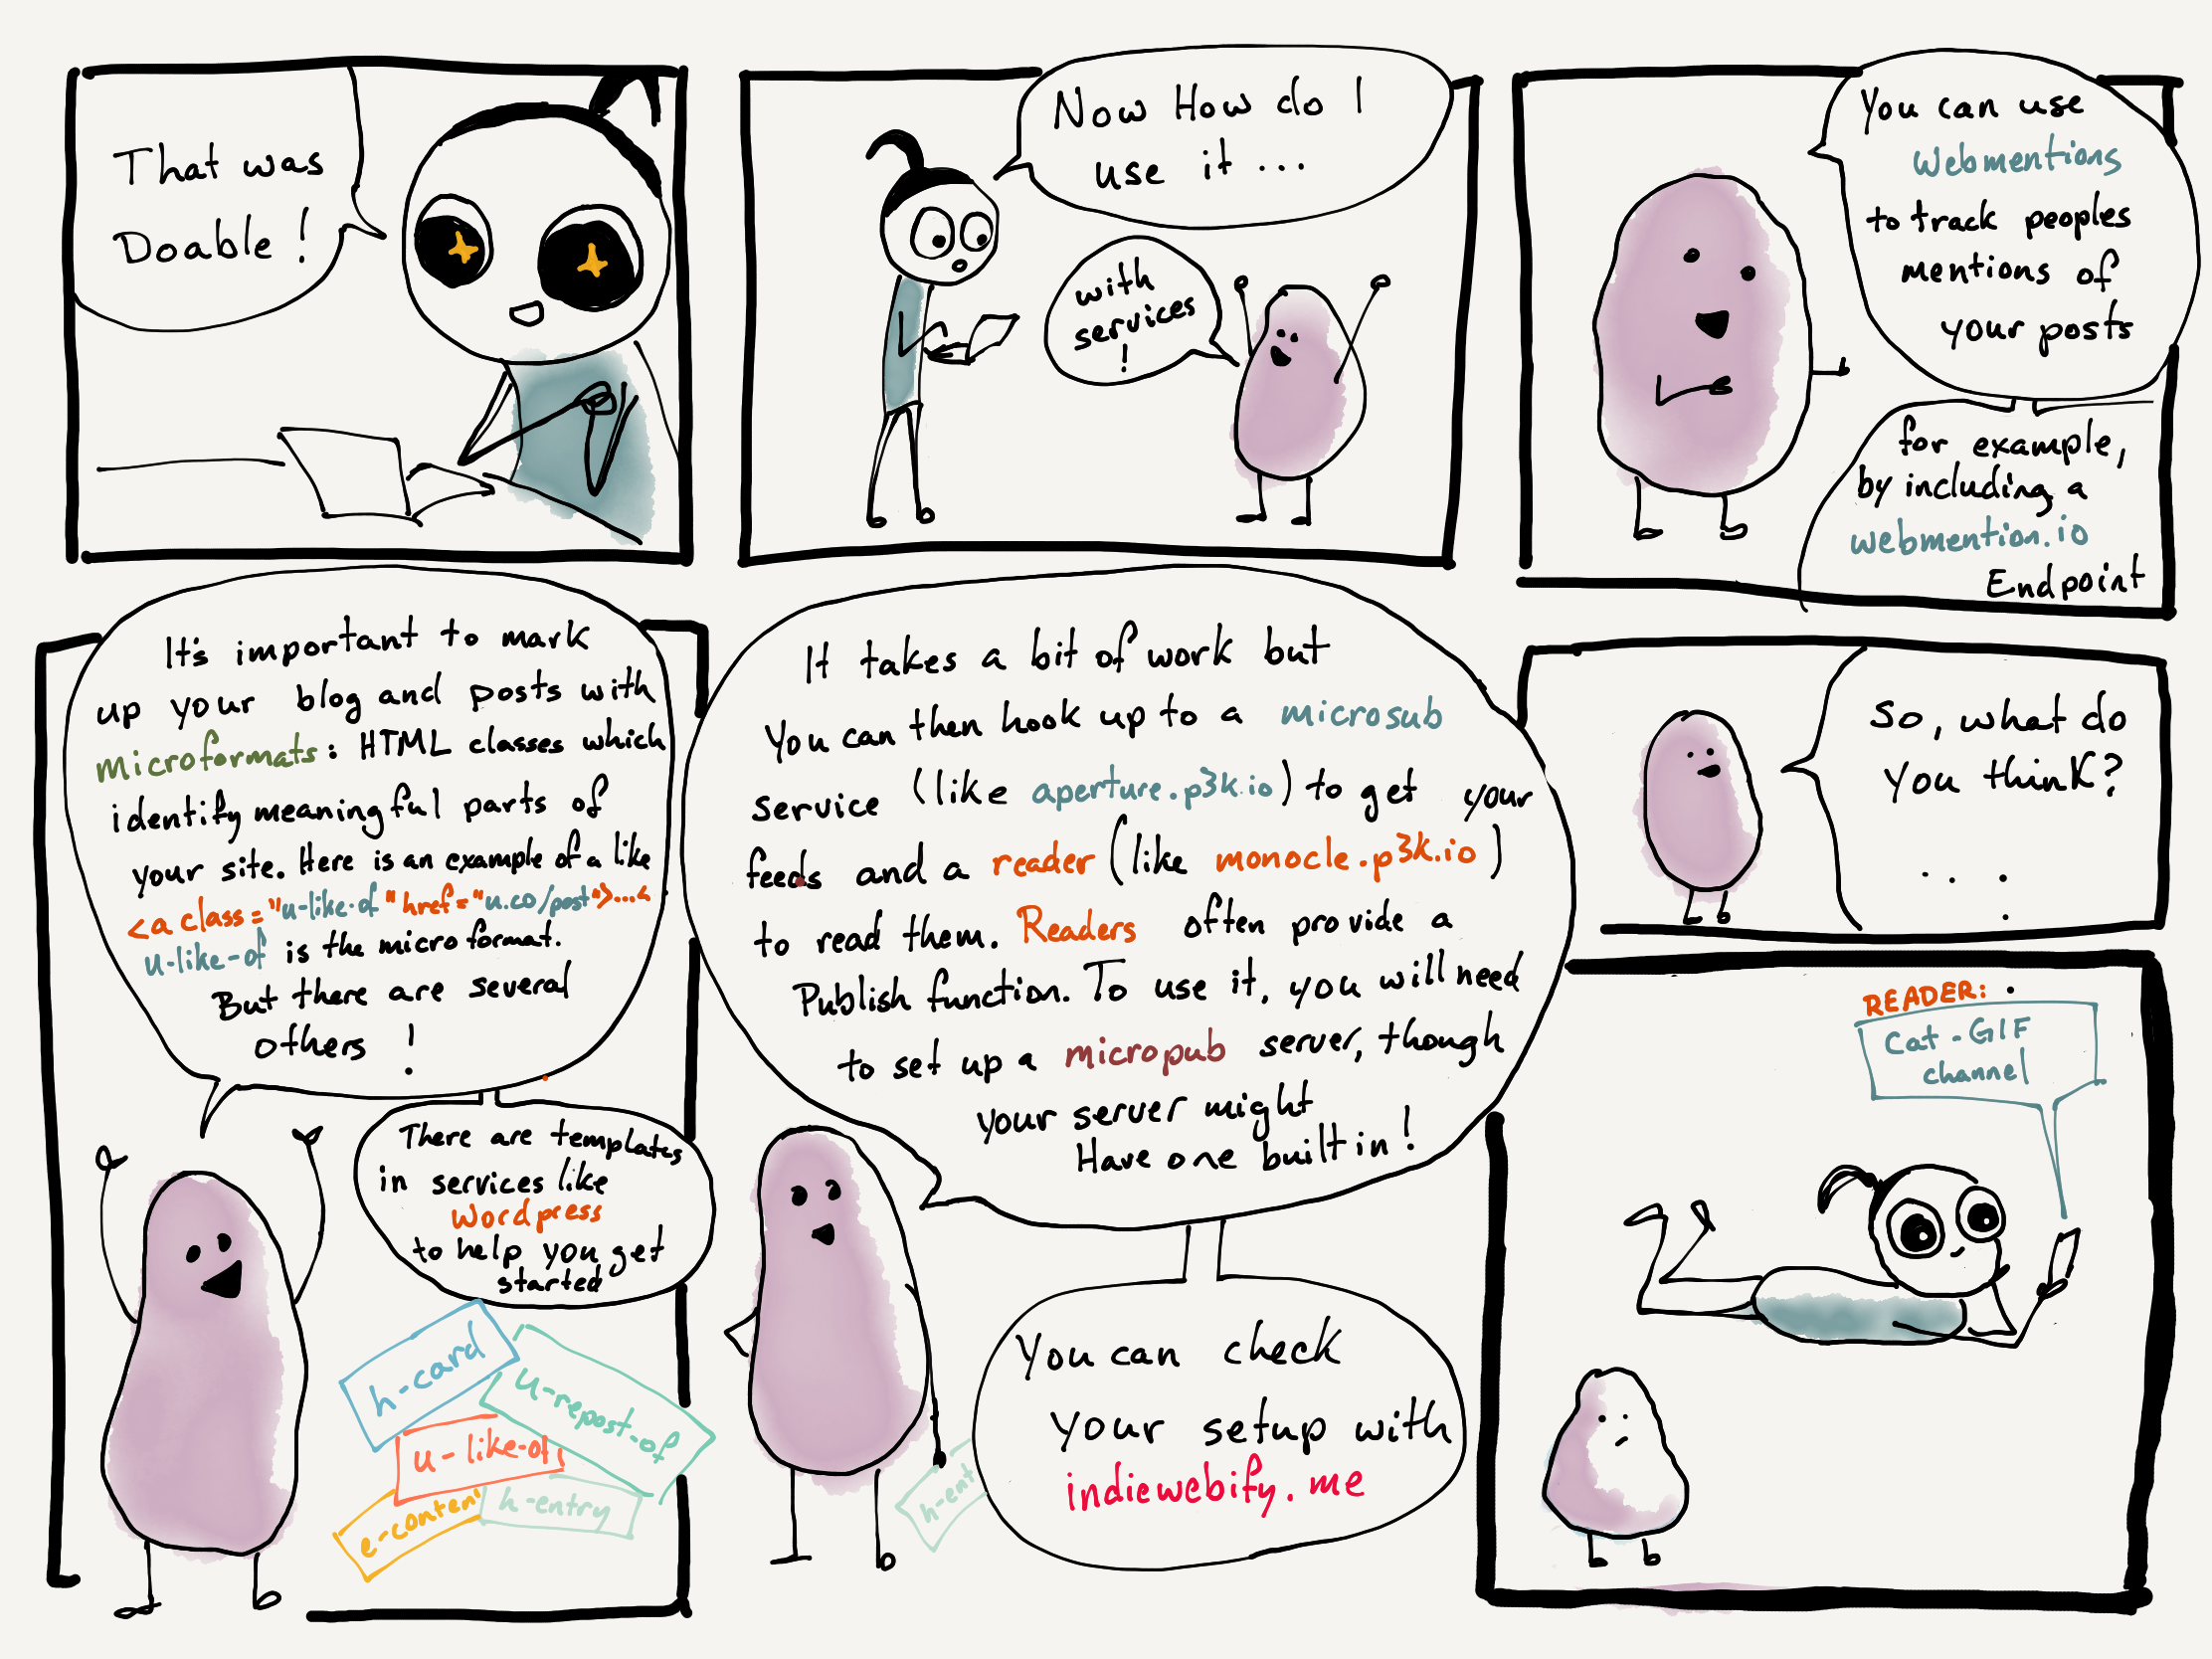 That was
Doable!
Now How do I
use it...
with
services
!
You can use
Webmentions
to track peoples
mentions of
your posts
for example,
by including a
webmention.io
Endpoint
It's important to mark
up your blog and posts with
microformats: HTML classes which
identify meaningful parts of
your site. Here is an example of a like
<a class="u-like-of" href="u.co/post">...<
u-like-of is the microformat.
But there are several
others!
There are templates
in services like
Wordpress
to help you get
started
h-card
u-repost-of
u-like-of
e-conten
h-entry
It takes a bit of work but
You can then hook up to a microsub
service (like aperture.p3k.io) to get your
feeds and a reader (like monocle.p3k.io)
to read them. Readers often provide a
Publish function. To use it, you will need
to set up a micropub server, though
your server might
Have one built in!
h-ent
You can check
your setup with
indiewebify.me
So, what do
you think?
. . .
READER:
Cat-GIF
channel